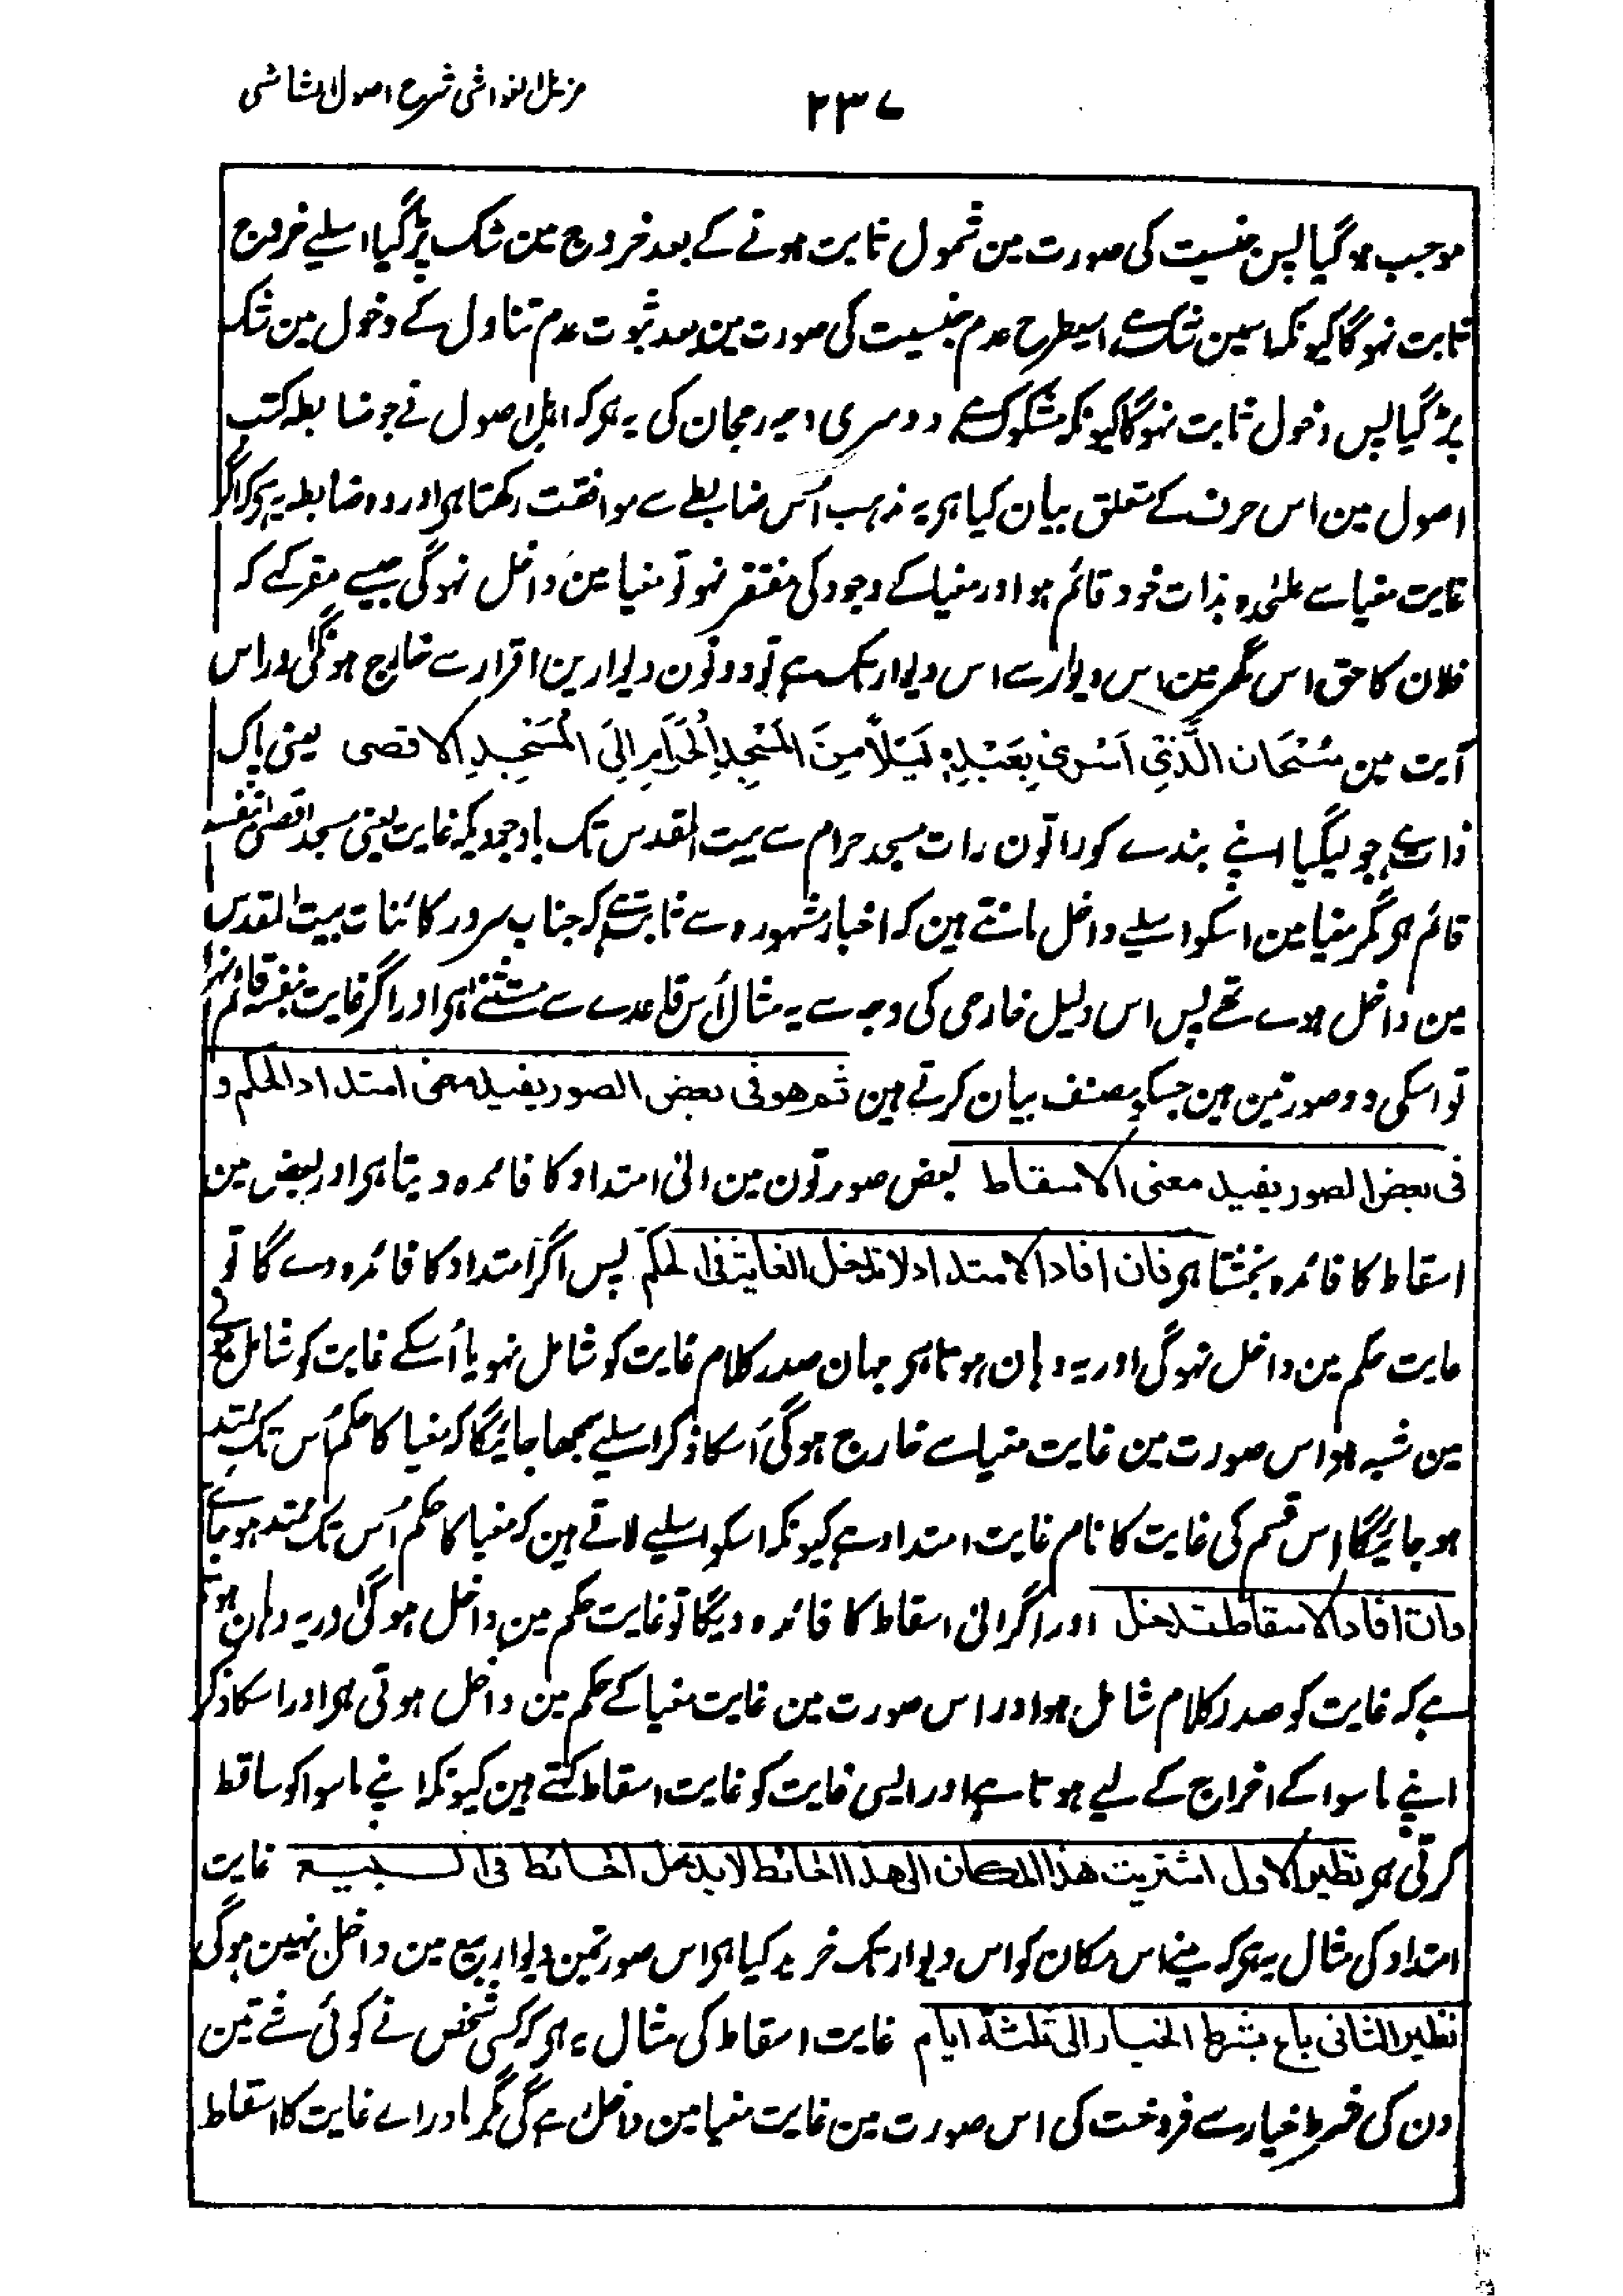 مزیل الغواشی شرح اصول الشاشی
۲۳۷
موجب ہو گیا پس جنسیت کی صورت مین شمول ثابت ہونے کے بعد خروج مین شک پڑ گیا اسلیے خروج
ثابت نہوگا کیونکہ اسمین شک ہے اسیطرح عدم جنسیت کی صورت مین بعد ثبوت عدم تناول کے دخول مین شک
پڑ گیا پس دخول ثابت نہوگا کیونکہ مشکوک ہے دوسری وجہ رجحان کی یہ ہر کہ اہل اصول نے جو ضابطہ کتب
اصول مین اس حرف کے متعلق بیان کیا ہر یہ مذہب اُس ضابطے سے موافقت رکھتا ہر اور وہ ضابطہ یہ ہر کہ اگر
غایت مغیا سے علٰحدہ بذات خود قائم ہو اور مغیا کے وجود کی مفتقر نہو تو مغیا مین داخل نہوگی جیسے مقر کہے کہ
فلان کا حق اس گھر مین اس دیوار سے اس دیوار تک ہے تو دونون دیوارین اقرار سے خارج ہونگی اور اس
آیت مین سُبْحَانَ الَّذِیْ اَسْریٰ بِعَبْدِہٖ لَیْلاً مِنَ الْمَسْجِدِ الْحَرَامِ اِلَی الْمَسْجِدِ الاقصی یعنی پاک
ذات ہے جو لیگیا اپنے بندے کو راتون رات مسجد حرام سے بیت المقدس تک باوجودیکہ غایت یعنی مسجد اقصیٰ بنفسہ
قائم ہر مگر مغیا مین اسکو اسلیے داخل مانتے ہین کہ اخبار مشہورہ سے ثابت ہے کہ جناب سرور کائنات بیت المقدس
مین داخل ہوے تھے پس اس دلیل خارجی کی وجہ سے یہ مثال اُس قاعدے سے مستثنےٰ ہر اور اگر غایت بنفسہ قائم نہو
تو اسکی دو صورتین ہین جسکو مصنف بیان کرتے ہین ثم هو فی بعض الصور یفید معنی امتداد الحکم و
فی بعض الصور یفید معنی الاسقاط بعض صورتون مین الیٰ امتداد کا فائدہ دیتا ہر اور بعض مین
اسقاط کا فائدہ بخشتا ہر فان افاد الامتداد لا تدخل الغایة فی الحکم پس اگر امتداد کا فائدہ دے گا تو
غایت حکم مین داخل نہوگی اور یہ وہان ہوتا ہر جہان صدر کلام غایت کو شامل نہو یا اُسکے غایت کو شامل ہونے
مین شبہ ہو اس صورت مین غایت مغیا سے خارج ہوگی اُسکا ذکر اسلیے سمجھا جائیگا کہ مغیا کا حکم اُس تک ممتد
ہو جائیگا اس قسم کی غایت کا نام غایت امتداد ہے کیونکہ اسکو اسلیے لاتے ہین کہ مغیا کا حکم اُس تک ممتد ہو جاے
وان افاد الاسقاط تدخل اور اگر الیٰ اسقاط کا فائدہ دیگا تو غایت حکم مین داخل ہوگی اور یہ وہان ہوتا
ہے کہ غایت کو صدر کلام شامل ہو اور اس صورت مین غایت مغیا کے حکم مین داخل ہوتی ہر اور اسکا ذکر
اپنے ماسوا کے اخراج کے لیے ہوتا ہے اور ایسی غایت کو غایت اسقاط کہتے ہین کیونکہ اپنے ماسوا کو ساقط
کرتی ہر نظیر الاول اشتریت هذا المکان الی هذا الحائط لا یدخل الحائط فی البیع غایت
امتداد کی مثال یہ ہر کہ مینے اس مکان کو اس دیوار تک خرید کیا ہر اس صورتمین دیوار بیع مین داخل نہین ہوگی
نظیر الثانی باع بشرط الخیار الی ثلثة ایام غایت اسقاط کی مثال یہ ہر کہ کسی شخص نے کوئی شے تین
دن کی شرط خیار سے فروخت کی اس صورت مین غایت مغیا مین داخل ہے گی مگر ماوراے غایت کا اسقاط